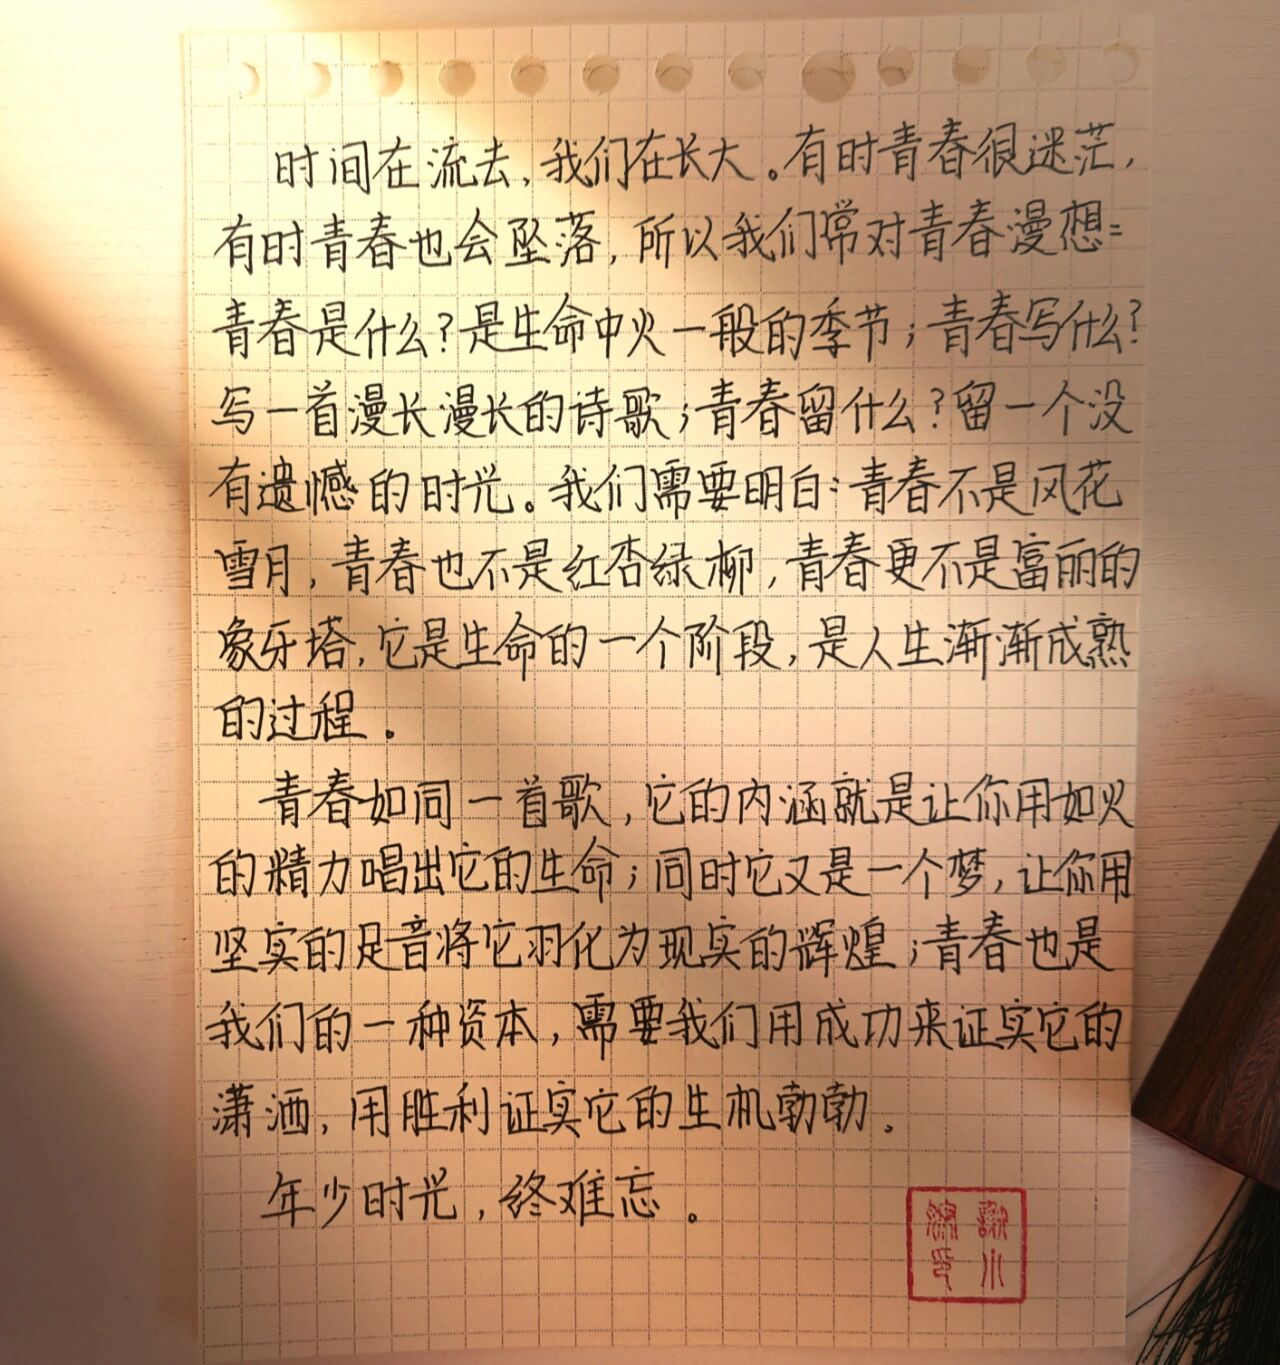 时间在流去,我们在长大。有时青春很迷茫,
有时青春也会坠落,所以我们常对青春漫想:
青春是什么?是生命中火一般的季节;青春写什么?
写一首漫长漫长的诗歌;青春留什么?留一个没
有遗憾的时光。我们需要明白:青春不是风花
雪月,青春也不是红杏绿柳,青春更不是富丽的
象牙塔,它是生命的一个阶段,是人生渐渐成熟
的过程。
青春如同一首歌,它的内涵就是让你用如火
的精力唱出它的生命;同时它又是一个梦,让你用
坚实的足音将它羽化为现实的辉煌;青春也是
我们的一种资本,需要我们用成功来证实它的
潇洒,用胜利证实它的生机勃勃。
年少时光,终难忘。